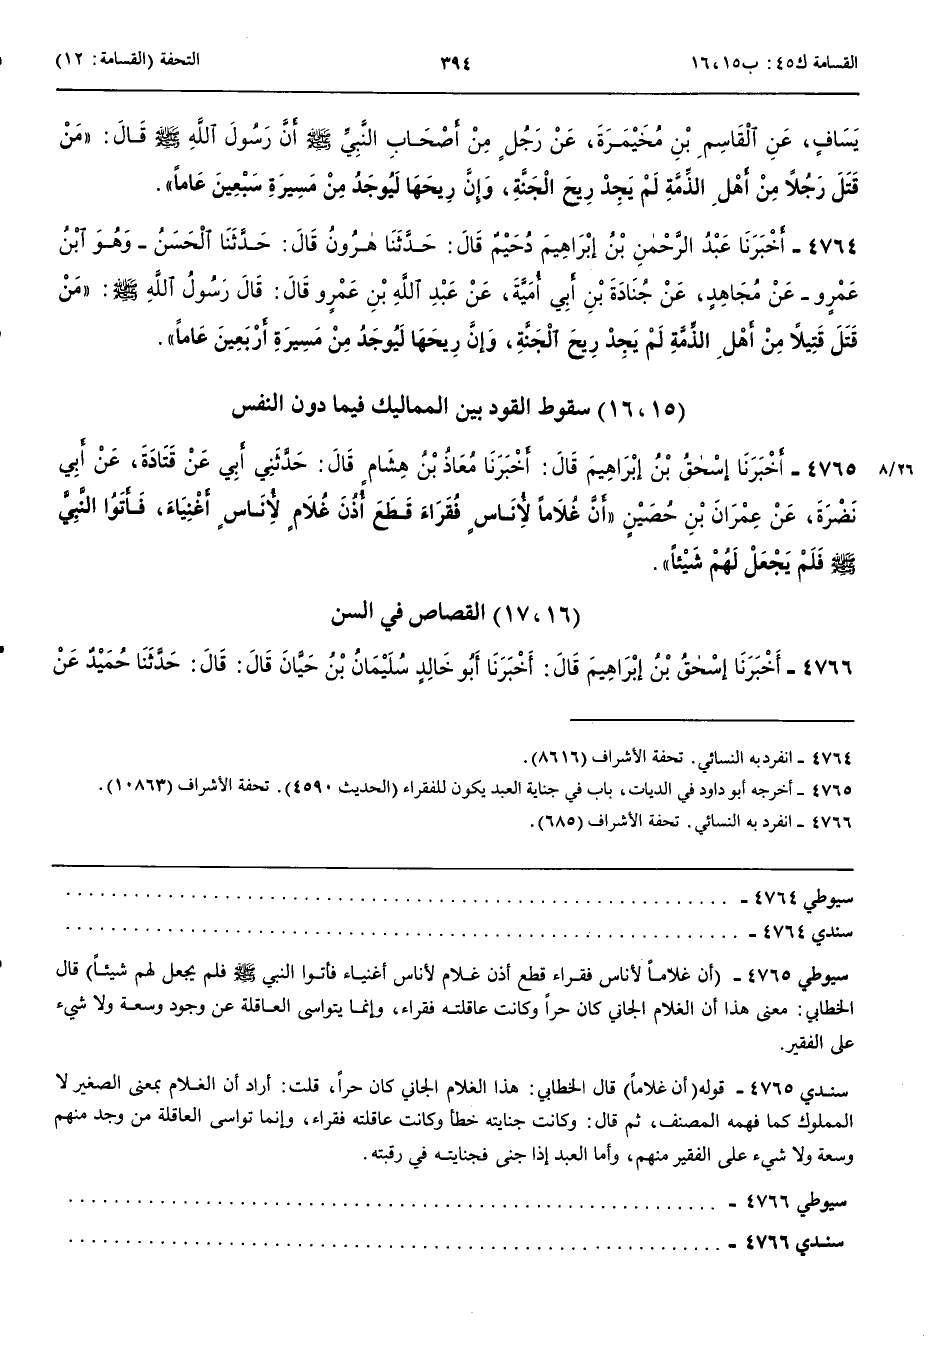 القسامة ك٤٥: ب١٥، ١٦ ٣٩٤ التحفة (القسامة: ١٢)
يَسَافٍ، عَنِ ٱلْقَاسِمِ بْنِ مُخَيْمَرَةَ، عَنْ رَجُلٍ مِنْ أَصْحَابِ النَّبِيِّ ﷺ أَنَّ رَسُولَ ٱللَّهِ ﷺ قَالَ: «مَنْ
قَتَلَ رَجُلاً مِنْ أَهْلِ الذِّمَّةِ لَمْ يَجِدْ رِيحَ الْجَنَّةِ، وَإِنَّ رِيحَهَا لَيُوجَدُ مِنْ مَسِيرَةِ سَبْعِينَ عَاماً».
٤٧٦٤ ـ أَخْبَرَنَا عَبْدُ الرَّحْمٰنِ بْنُ إِبْرَاهِيمَ دُحَيْمٌ قَالَ: حَدَّثَنَا هٰرُونُ قَالَ: حَدَّثَنَا ٱلْحَسَنُ ـ وَهُوَ ٱبْنُ
عَمْرٍو ـ عَنْ مُجَاهِدٍ، عَنْ جُنَادَةَ بْنِ أَبِي أُمَيَّةَ، عَنْ عَبْدِ ٱللَّهِ بْنِ عَمْرٍو قَالَ: قَالَ رَسُولُ ٱللَّهِ ﷺ: «مَنْ
قَتَلَ قَتِيلاً مِنْ أَهْلِ الذِّمَّةِ لَمْ يَجِدْ رِيحَ ٱلْجَنَّةِ، وَإِنَّ رِيحَهَا لَيُوجَدُ مِنْ مَسِيرَةِ أَرْبَعِينَ عَاماً».
(١٥، ١٦) سقوط القود بين المماليك فيما دون النفس
٨/٢٦ ٤٧٦٥ ـ أَخْبَرَنَا إِسْحٰقُ بْنُ إِبْرَاهِيمَ قَالَ: أَخْبَرَنَا مُعَاذُ بْنُ هِشَامٍ قَالَ: حَدَّثَنِي أَبِي عَنْ قَتَادَةَ، عَنْ أَبِي
نَضْرَةَ، عَنْ عِمْرَانَ بْنِ حُصَيْنٍ «أَنَّ غُلَاماً لِأُنَاسٍ فُقَرَاءَ قَطَعَ أُذُنَ غُلَامٍ لِأُنَاسٍ أَغْنِيَاءَ، فَأَتَوُا النَّبِيَّ
ﷺ فَلَمْ يَجْعَلْ لَهُمْ شَيْئاً».
(١٦، ١٧) القصاص في السن
٤٧٦٦ ـ أَخْبَرَنَا إِسْحٰقُ بْنُ إِبْرَاهِيمَ قَالَ: أَخْبَرَنَا أَبُو خَالِدٍ سُلَيْمَانُ بْنُ حَيَّانَ قَالَ: قَالَ: حَدَّثَنَا حُمَيْدٌ عَنْ
٤٧٦٤ ـ انفرد به النسائي. تحفة الأشراف (٨٦١٦).
٤٧٦٥ ـ أخرجه أبو داود في الديات، باب في جناية العبد يكون للفقراء (الحديث ٤٥٩٠). تحفة الأشراف (١٠٨٦٣).
٤٧٦٦ ـ انفرد به النسائي. تحفة الأشراف (٦٨٥).
سيوطي ٤٧٦٤ ـ . . . . . . . . . . . . . . . . . . . .
سندي ٤٧٦٤ ـ . . . . . . . . . . . . . . . . . . . .
سيوطي ٤٧٦٥ ـ (أن غلاماً لأناس فقراء قطع أذن غلام لأناس أغنياء فأتوا النبي ﷺ فلم يجعل لهم شيئاً) قال
الخطابي: معنى هذا أن الغلام الجاني كان حراً وكانت عاقلته فقراء، وإنما يتواسى العاقلة عن وجود وسعة ولا شيء
على الفقير.
سندي ٤٧٦٥ ـ قوله (أن غلاماً) قال الخطابي: هذا الغلام الجاني كان حراً، قلت: أراد أن الغلام بمعنى الصغير لا
المملوك كما فهمه المصنف، ثم قال: وكانت جنايته خطأ وكانت عاقلته فقراء، وإنما تواسى العاقلة من وجد منهم
وسعة ولا شيء على الفقير منهم، وأما العبد إذا جنى فجنايته في رقبته.
سيوطي ٤٧٦٦ ـ . . . . . . . . . . . . . . . . . . . .
سندي ٤٧٦٦ ـ . . . . . . . . . . . . . . . . . . . .